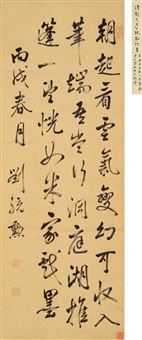 朝起看雲氣變幻可收入
筆端吾嘗行洞庭湖推
蓬一望恍如米家戲墨
丙戌春月 劉統勳